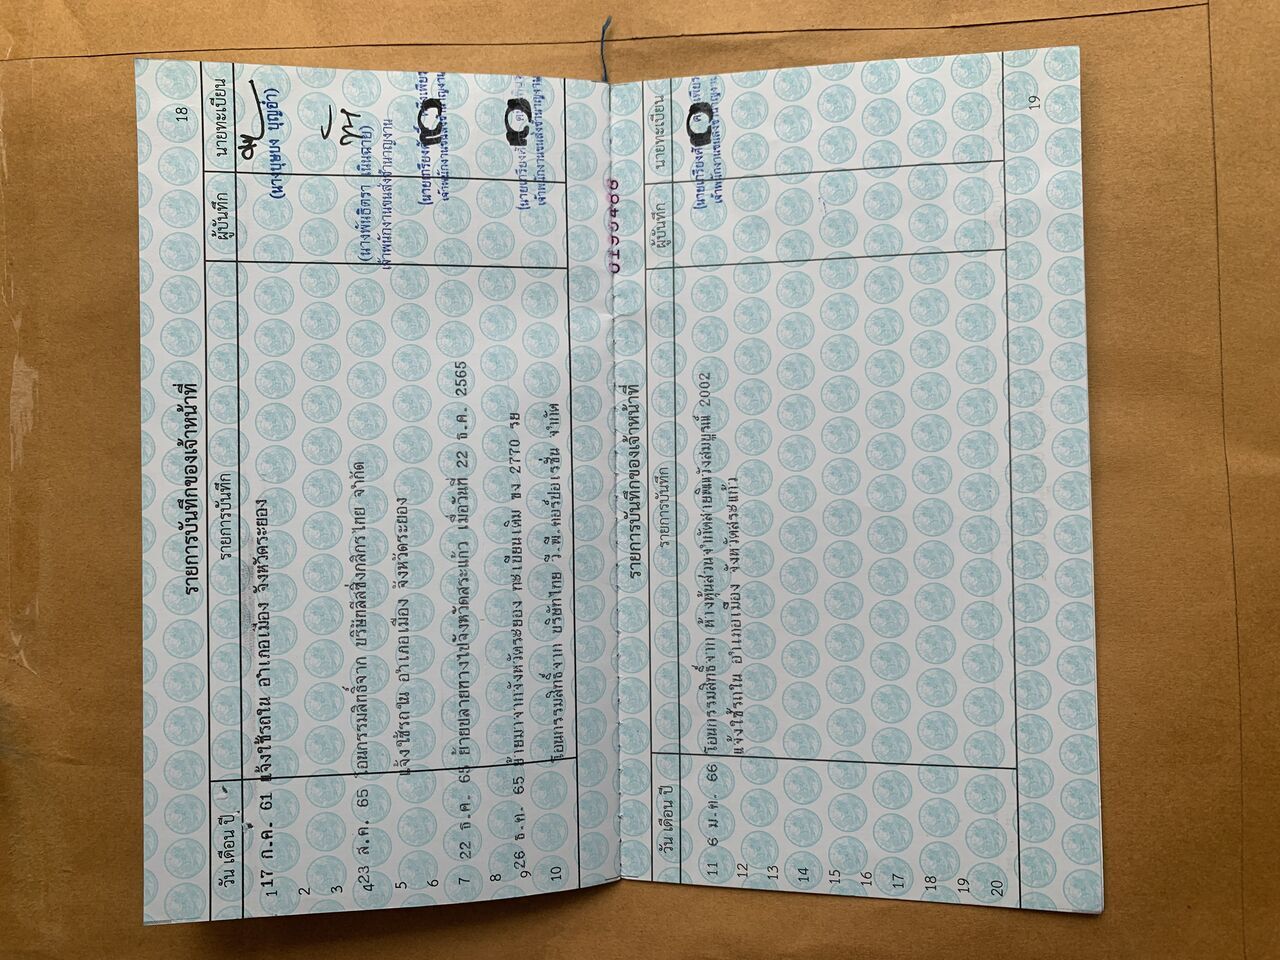 18
รายการบันทึกของเจ้าหน้าที่
วัน เดือน ปี รายการบันทึก ผู้บันทึก นายทะเบียน
1 17 ก.ค. 61 แจ้งใช้รถใน อำเภอเมือง จังหวัดระยอง
(นางบุษบง บุญอ่ำ)
2
3
4 23 ส.ค. 65 โอนกรรมสิทธิ์จาก บริษัทลีสซิ่งกสิกรไทย จำกัด
(นางพันธิตรา เนินฉาย)
5 แจ้งใช้รถใน อำเภอเมือง จังหวัดระยอง
เจ้าพนักงานขนส่งชำนาญงาน
6
7 22 ธ.ค. 65 ย้ายปลายทางไปจังหวัดสระแก้ว เมื่อวันที่ 22 ธ.ค. 2565
เจ้าพนักงานขนส่งชำนาญงาน
8
9 26 ธ.ค. 65 ย้ายมาจากจังหวัดระยอง ทะเบียนเดิม ขง 2770 รย
10 โอนกรรมสิทธิ์จาก บริษัทไทย วี.พี.คอร์ปอเรชั่น จำกัด
เจ้าพนักงานขนส่งชำนาญงาน
รายการบันทึกของเจ้าหน้าที่
วัน เดือน ปี รายการบันทึก ผู้บันทึก นายทะเบียน
11 6 ม.ค. 66 โอนกรรมสิทธิ์จาก ห้างหุ้นส่วนจำกัดสายพิณวังสมบูรณ์ 2002
12 แจ้งใช้รถใน อำเภอเมือง จังหวัดสระแก้ว
เจ้าพนักงานขนส่งชำนาญงาน
13
14
15
16
17
18
19
20
19